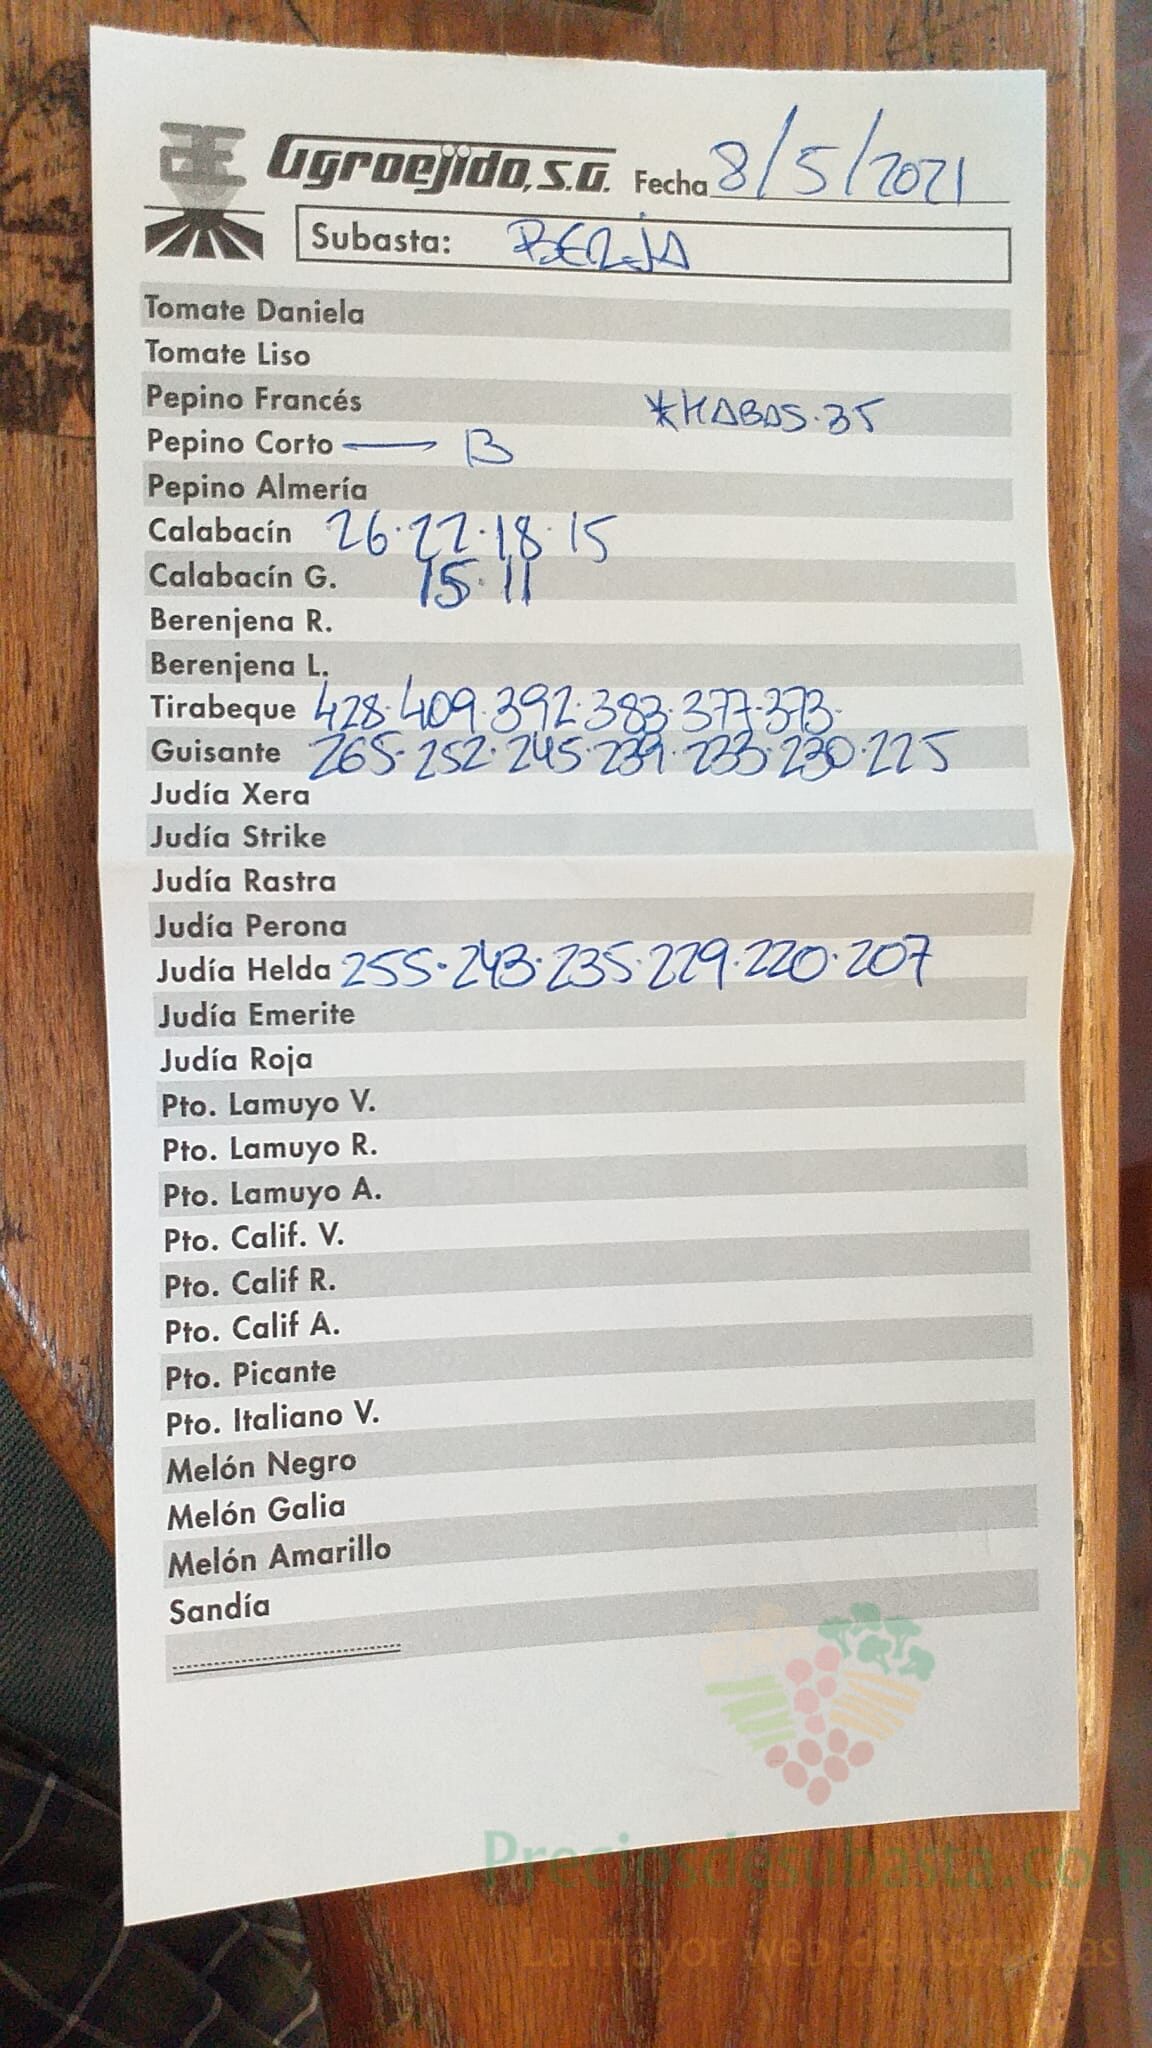 Agroejido, S.A. Fecha 8/5/2021
Subasta: BERJA
Tomate Daniela
Tomate Liso
Pepino Francés *HABAS·35
Pepino Corto B
Pepino Almería
Calabacín 26·22·18·15
Calabacín G. 15·11
Berenjena R.
Berenjena L.
Tirabeque 428·409·392·383·377·373·
Guisante 265·252·245·239·233·230·225
Judía Xera
Judía Strike
Judía Rastra
Judía Perona
Judía Helda 255·243·235·229·220·207
Judía Emerite
Judía Roja
Pto. Lamuyo V.
Pto. Lamuyo R.
Pto. Lamuyo A.
Pto. Calif. V.
Pto. Calif R.
Pto. Calif A.
Pto. Picante
Pto. Italiano V.
Melón Negro
Melón Galia
Melón Amarillo
Sandía
Preciosdesubasta.com
La mayor web de